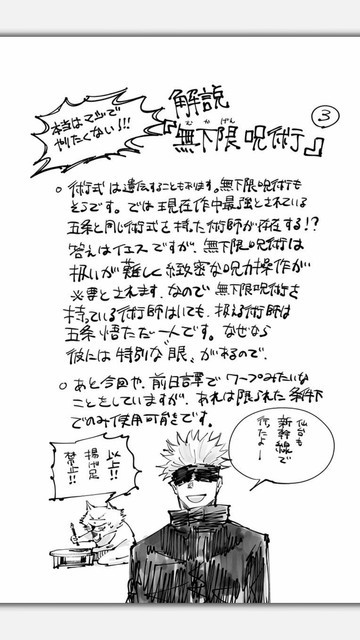 本当はマジで
やりたくない!!!
解説
『無下限呪術』
むかげん
③
○術式は遺伝することもあります。無下限呪術も
そうです。では現在作中最強とされている
五条と同じ術式を持った術師が存在する!?
答えはイエスですが、無下限呪術は
扱いが難しく緻密な呪力操作が
必要とされます。なので無下限呪術を
持っている術師はいても、扱える術師は
五条悟ただ一人です。なぜなら
彼には特別な"眼"があるので。
○あと今回や、前日譚でワープみたいな
ことをしていますが、あれは限られた条件下
でのみ使用可能です。
以上!!
揚げ足
禁止!!
仙台も
新幹線で
行ったよー